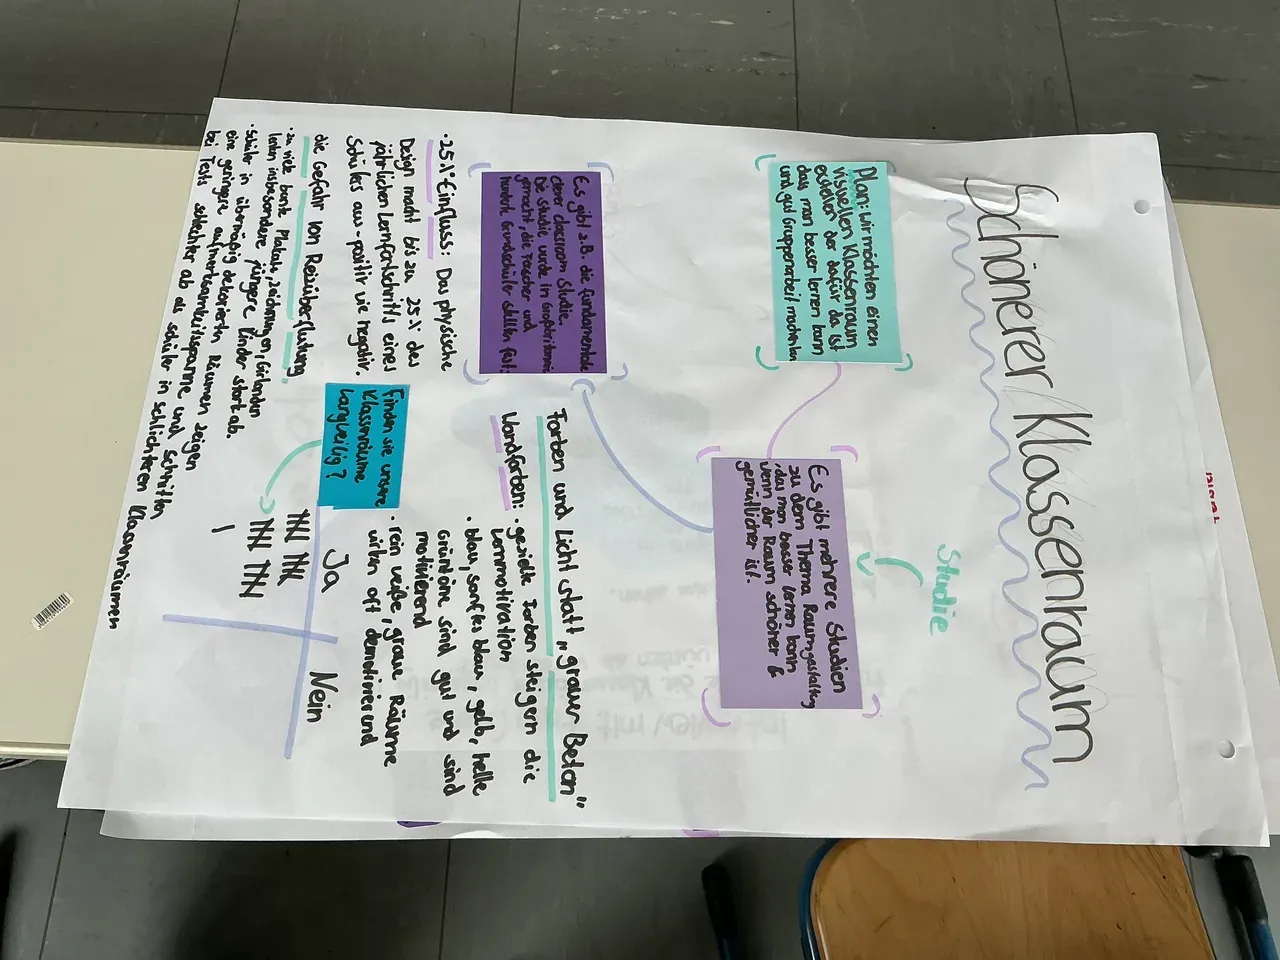 Schönerer Klassenraum
Studie
Plan: Wir möchten einen
visuellen Klassenraum
erstellen der dafür da ist
das man besser lernen kann
und gut Gruppenarbeit machen kann
Es gibt mehrere Studien
zu dem Thema Raumgestaltung
, das man besser lernen kann
wenn der Raum schöner &
gemütlicher ist.
Es gibt z.B. die fundamente
clever classroom Studie.
Die Studie wurde in Großbritannien
gemacht, die Forscher und
hunderte Grundschüler stellten fest:
• 25%-Einfluss: Das physische
Design macht bis zu 25% des
jährlichen Lernfortschritts eines
Schülers aus positiv wie negativ.
die Gefahr von Reizüberflutung
• zu viele bunte Plakate, zeichnungen, Girlanden
lenken insbesondere jüngere kinder stark ab.
• Schüler in übermäßig dekorierten Räumen zeigen
eine geringere aufmerksamkeitsspanne und schnitten
bei Tests schlechter ab als schüler in schlichteren Klassenräumen
Farben und Licht statt „grauer Beton"
Wandfarben: • gezielte Farben steigern die
Lernmotivation
• blau, sanftes blau, gelb, helle
Grüntöne sind gut und sind
motivierend
• rein weiße, graue Räume
wirken oft demotivierend
Finden sie unsere
Klassenräume
langweilig?
Ja
Nein